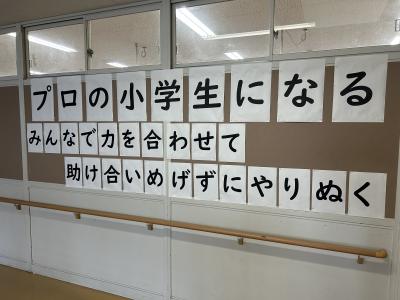 プロの小学生になる
みんなで力を合わせて
助け合いめげずにやりぬく